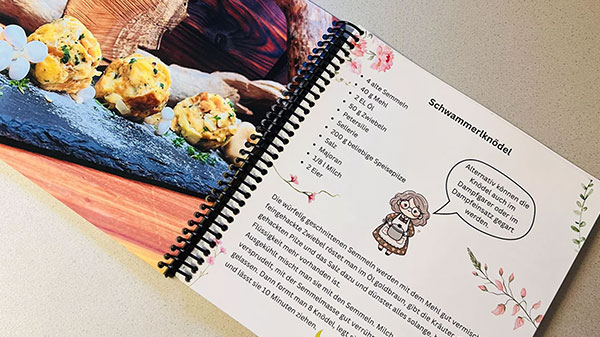 Schwammerlknödel
4 alte Semmeln
40 g Mehl
2 EL Öl
50 g Zwiebeln
Petersilie
Sellerie
200 g beliebige Speisepilze
Salz
Majoran
1/8 l Milch
2 Eier
Alternativ können die
Knödel auch im
Dampfgarer oder im
Dampfeinsatz gegart
werden.
Die würfelig geschnittenen Semmeln werden mit dem Mehl gut vermisch
feingehackte Zwiebel röstet man im Öl goldbraun, gibt die Kräuter
gehackten Pilze und das Salz dazu und dünstet alles solange,
Flüssigkeit mehr vorhanden ist.
Ausgekühlt mischt man sie mit den Semmeln. Milch
versprudelt, mit der Semmelmasse gut verrühr
gelassen. Dann formt man 8 Knödel, legt
und lässt sie 10 Minuten ziehen.